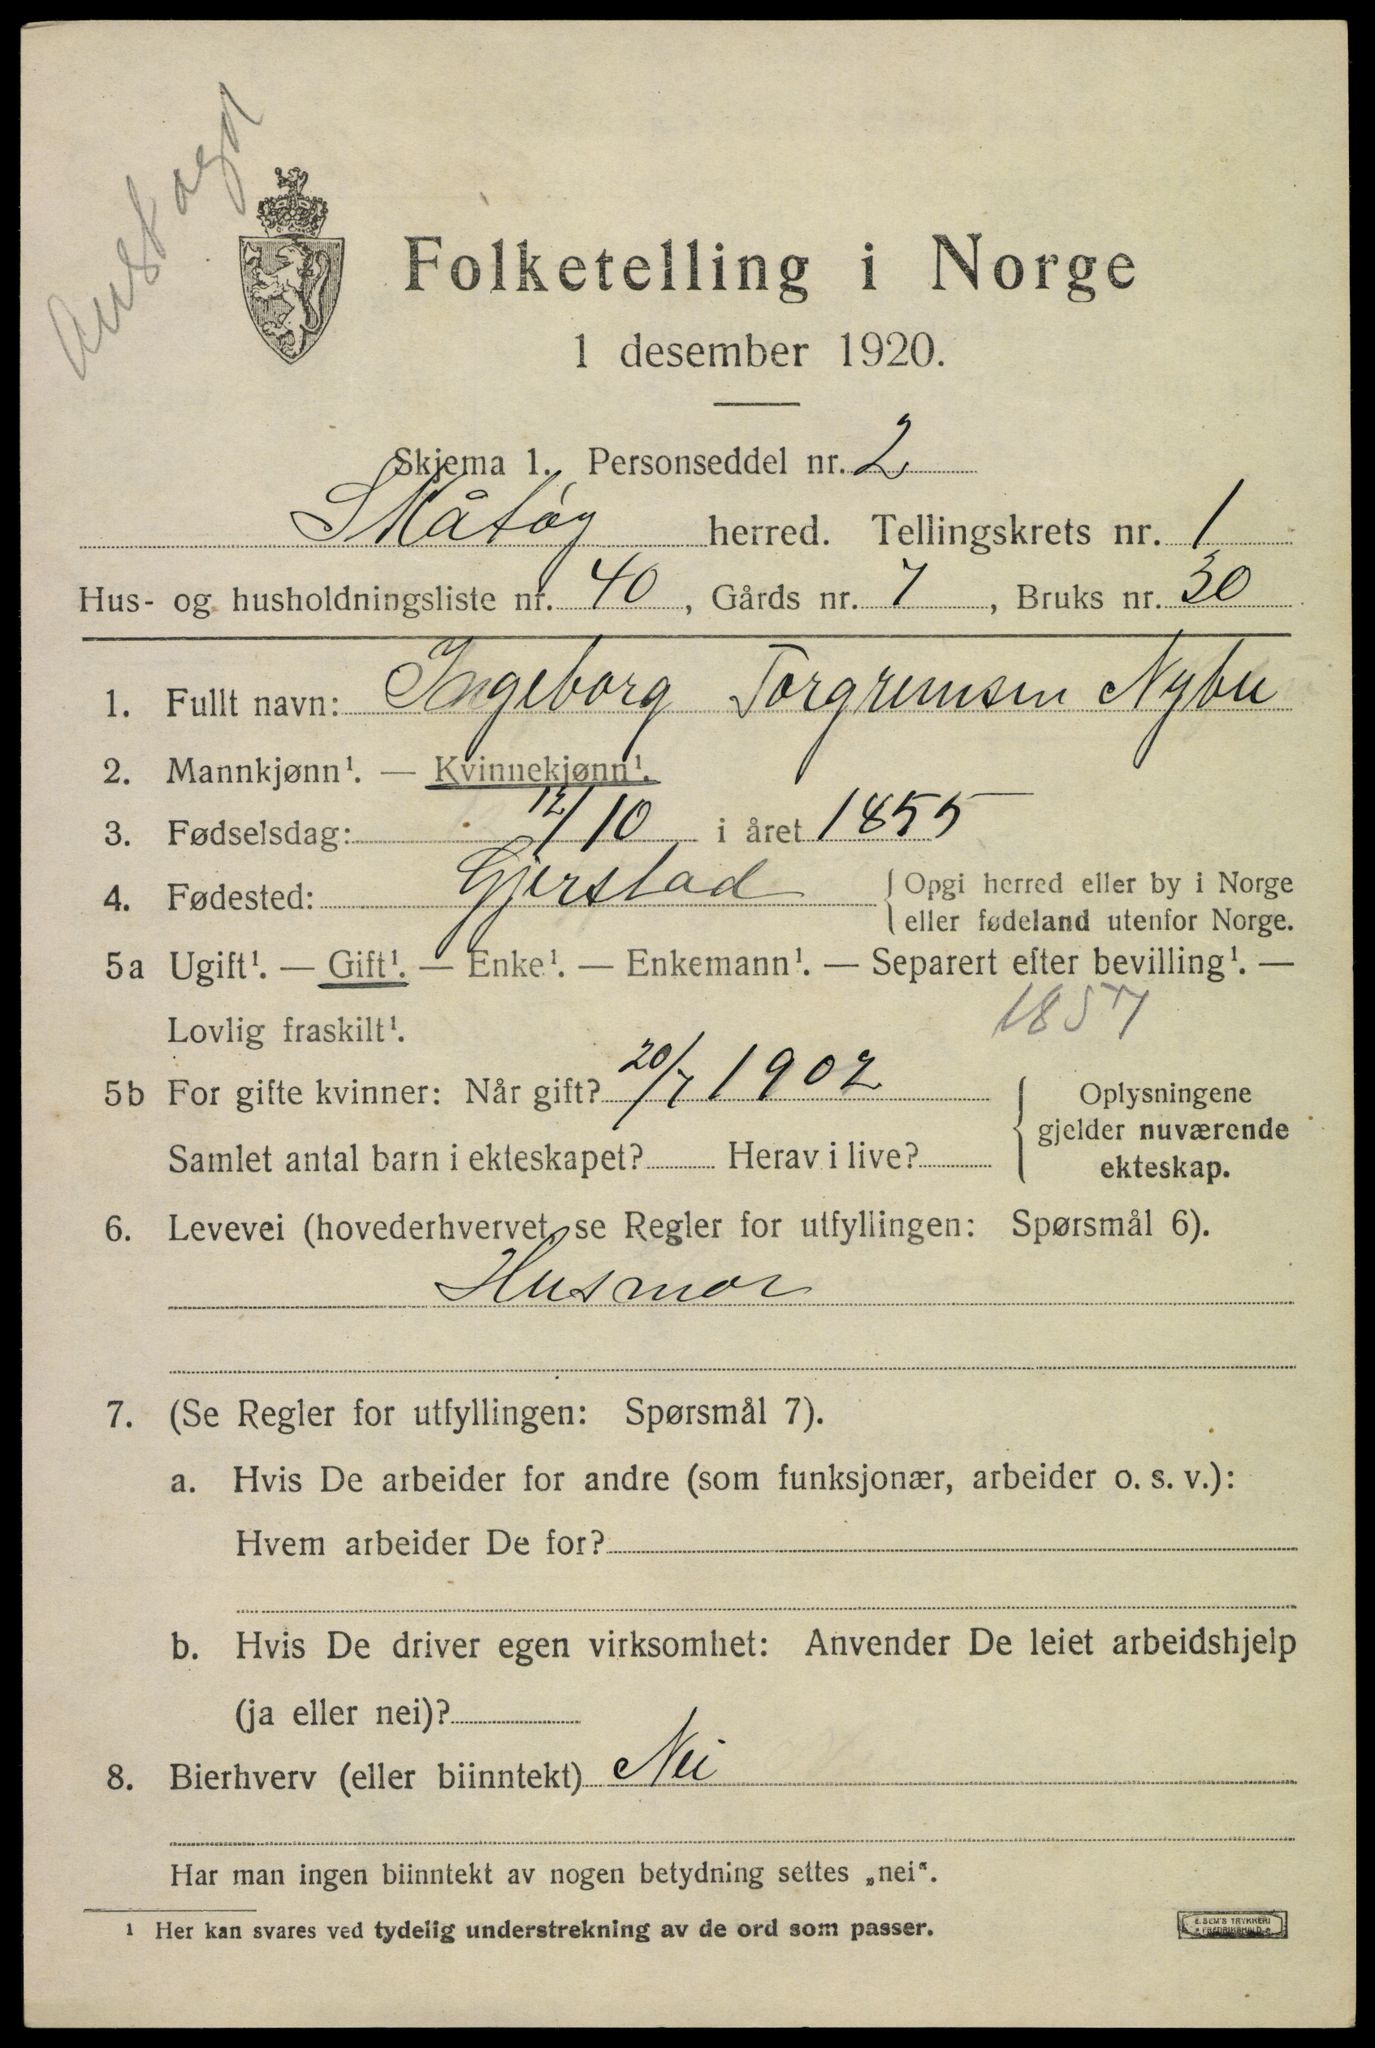 Aust agd
Folketelling i Norge
1 desember 1920.
Skjema 1. Personseddel nr. 2
Skåtøy herred. Tellingskrets nr. 1
Hus- og husholdningsliste nr. 40, Gårds nr. 7, Bruks nr. 30
1. Fullt navn: Ingeborg Torgrimsen Nybu
2. Mannkjønn¹. — Kvinnekjønn¹.
3. Fødselsdag: 12/10 i året 1855
4. Fødested: Gjerstad { Opgi herred eller by i Norge
eller fødeland utenfor Norge.
5a Ugift¹. — Gift¹. — Enke¹. — Enkemann¹. — Separert efter bevilling¹. —
Lovlig fraskilt¹. 1857
5b For gifte kvinner: Når gift? 20/7 1902 { Oplysningene
gjelder nuværende
Samlet antal barn i ekteskapet? Herav i live? ekteskap.
6. Levevei (hovederhvervet, se Regler for utfyllingen: Spørsmål 6).
Husmor
7. (Se Regler for utfyllingen: Spørsmål 7).
a. Hvis De arbeider for andre (som funksjonær, arbeider o. s. v.):
Hvem arbeider De for?
b. Hvis De driver egen virksomhet: Anvender De leiet arbeidshjelp
(ja eller nei)?
8. Bierhverv (eller biinntekt) Nei
Har man ingen biinntekt av nogen betydning settes „nei".
¹ Her kan svares ved tydelig understrekning av de ord som passer.
E. SEM'S TRYKKERI
FREDRIKSHALD